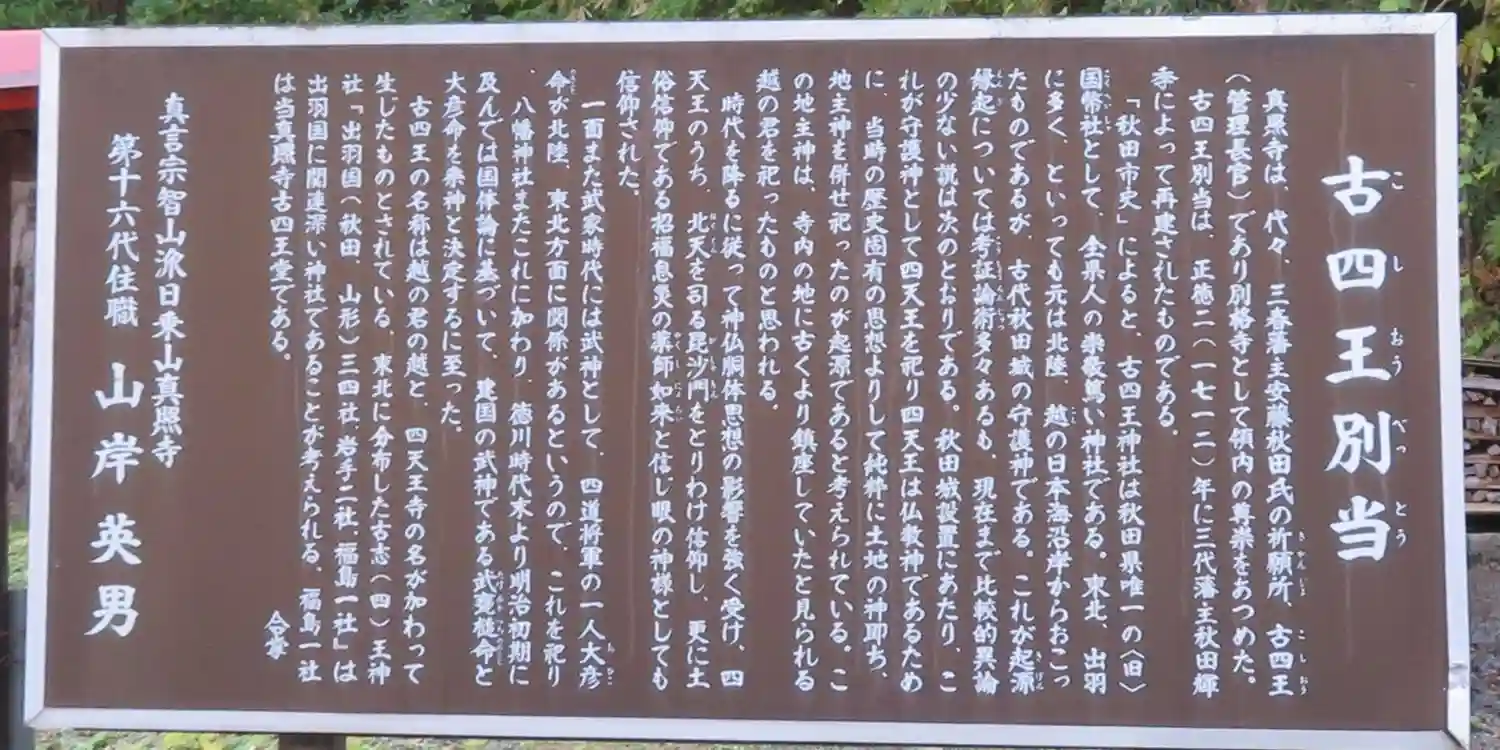 古四王別当
真照寺は、代々、三春藩主安藤秋田氏の祈願所、古四王
(管理長官)であり別格寺として領内の尊崇をあつめた。
古四王別当は、正徳二(一七一二)年に三代藩主秋田輝
季によって再建されたものである。
「秋田市史」によると、古四王神社は秋田県唯一の〈旧〉
国幣社として、全県人の崇敬篤い神社である。東北、出羽
に多く、といっても元は北陸、越の日本海沿岸からおこっ
たものであるが、古代秋田城の守護神である。これが起源
縁起については考証論術多々あるも、現在まで比較的異論
の少ない説は次のとおりである。秋田城設置にあたり、こ
れが守護神として四天王を祀り四天王は仏教神であるため
に、当時の歴史固有の思想よりして純粋に土地の神即ち、
地主神を併せ祀ったのが起源であると考えられている。こ
の地主神は、寺内の地に古くより鎮座していたと見られる
越の君を祀ったものと思われる。
時代を降るに従って神仏胴体思想の影響を強く受け、四
天王のうち、北天を司る毘沙門をとりわけ信仰し、更に土
俗信仰である招福息災の薬師如来と信じ眼の神様としても
信仰された。
一面また武家時代には武神として、四道将軍の一人大彦
命が北陸、東北方面に関係があるというので、これを祀り
、八幡神社またこれに加わり、徳川時代末より明治初期に
及んでは国体論に基づいて、建国の武神である武甕槌命と
大彦命を祭神と決定するに至った。
古四王の名称は越の君の越と、四天王寺の名が加わって
生じたものとされている。東北に分布した古志(四)王神
社「出羽国(秋田、山形)三四社、岩手二社、福島一社」は
出羽国に関連深い神社であることが考えられる。福島一社
は当真照寺古四王堂である。
合掌
真言宗智山派日乗山真照寺
第十六代住職 山岸英男